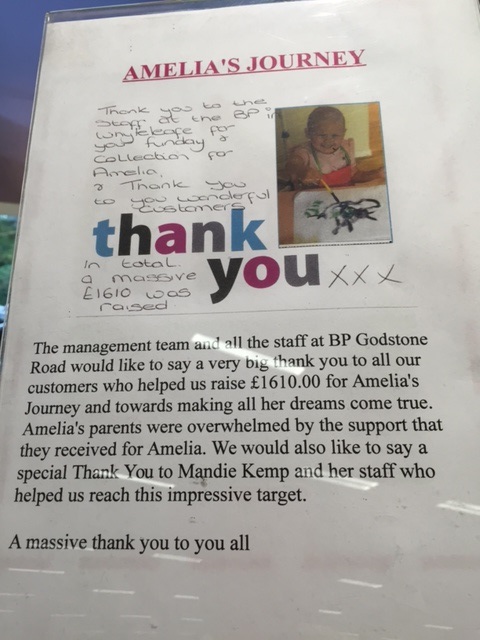 AMELIA'S JOURNEY
Thank you to the
Staff at the BP in
Whyteleafe for
your funday &
Collection for
Amelia.
& Thank you
to you wonderful
customers
thank
you xxx
In total
a massive
£1610 was
raised
The management team and all the staff at BP Godstone
Road would like to say a very big thank you to all our
customers who helped us raise £1610.00 for Amelia's
Journey and towards making all her dreams come true.
Amelia's parents were overwhelmed by the support that
they received for Amelia. We would also like to say a
special Thank You to Mandie Kemp and her staff who
helped us reach this impressive target.
A massive thank you to you all